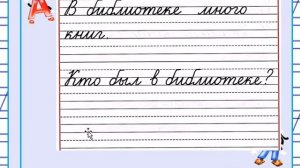 А
В библиотеке много
книг.
Кто был в библиотеке?